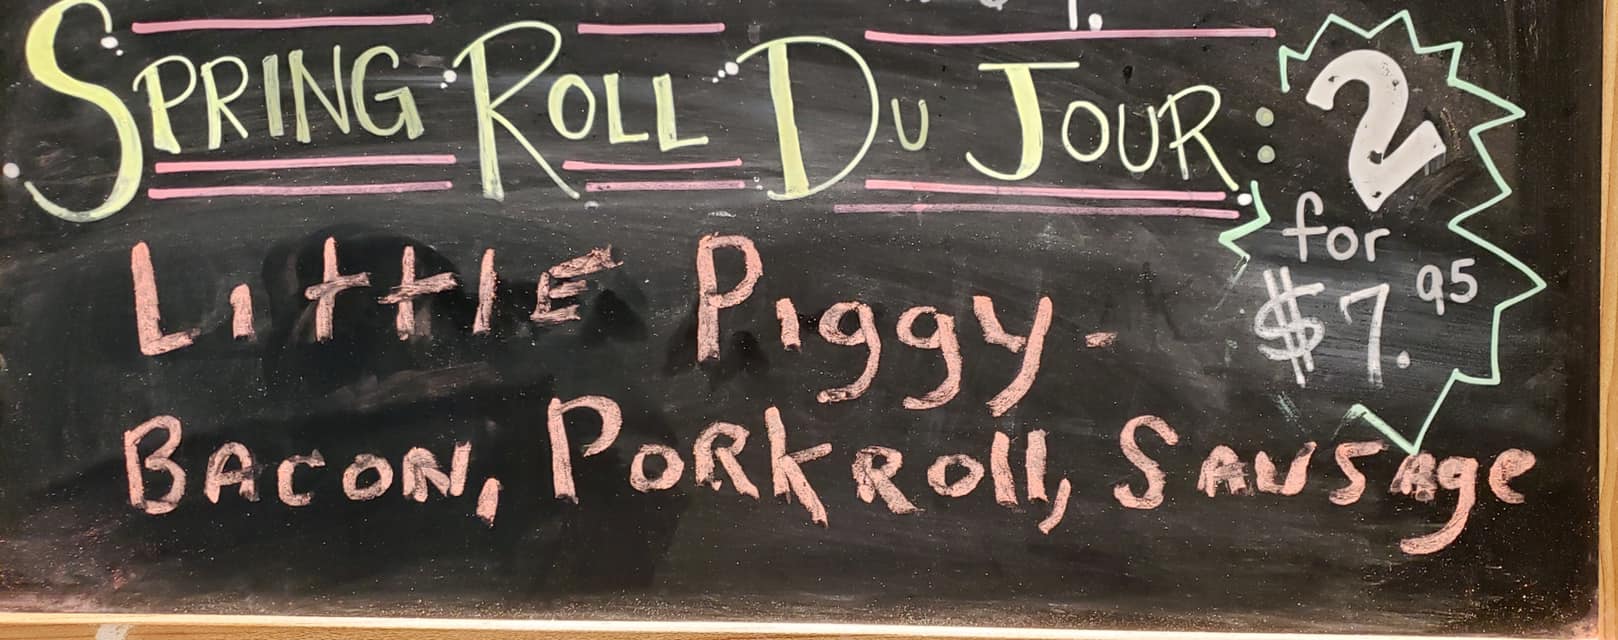 SPRING ROLL DU JOUR:
2
for
$7.95
LiTTLE Piggy-
BACON, PORKROll, SAUSAge